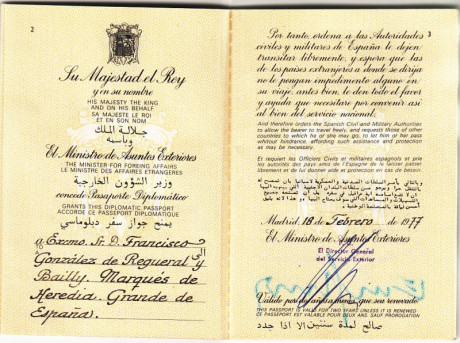 2
Su Majestad el Rey
y en su nombre
HIS MAJESTY THE KING
AND ON HIS BEHALF
SA MAJESTE LE ROI
ET EN SON NOM
جلالة الملك
وباسمه
El Ministro de Asuntos Exteriores
THE MINISTER FOR FOREING AFFAIRS
LE MINISTRE DES AFFAIRES ETRANGERES
وزير الشؤون الخارجية
concede Pasaporte Diplomático
GRANTS THIS DIPLOMATIC PASSPORT
ACCORDE CE PASSPORT DIPLOMATIQUE
يمنح جواز سفر دبلوماسي
a Excmo. Sr. D. Francisco
إلى
González de Regueral y
Bailly. Marqués de
Heredia. Grande de
España.
3
Por tanto, ordena a las Autoridades
civiles y militares de España le dejen
transitar libremente, y espera que las
de los países extranjeros a donde se dirija
no le pongan impedimento alguno en
su viaje, antes bien, le den todo el favor
y ayuda que necesitare por convenir así
al bien del servicio nacional.
And herefore orders the Spanish Civil and Military Authorities
to allow the bearer to travel freely, and requests those of other
countries to which he of she may go, to let him of her pass
without hindrance, affording such assistance and protection
as may be necessary.
Et requiert les Officiers Civils et militaires espagnols et prie
les autorités des pays amis de l'Espagne de le laisser passer
librement et de lui donner toute aide et protection dans ce but.
Madrid, 18 de Febrero de 1977
El Ministro de Asuntos Exteriores
El Director General
del Servicio Exterior
Valido por dos años a menos que sea renovado
THIS PASSPORT IS VALID FOR TWO YEARS UNLESS IT IS RENEWED
CE PASSEPORT EST VALABLE POUR DEUX ANS. SAUF PROROGATION
صالح لمدة سنتين الا اذا جدد